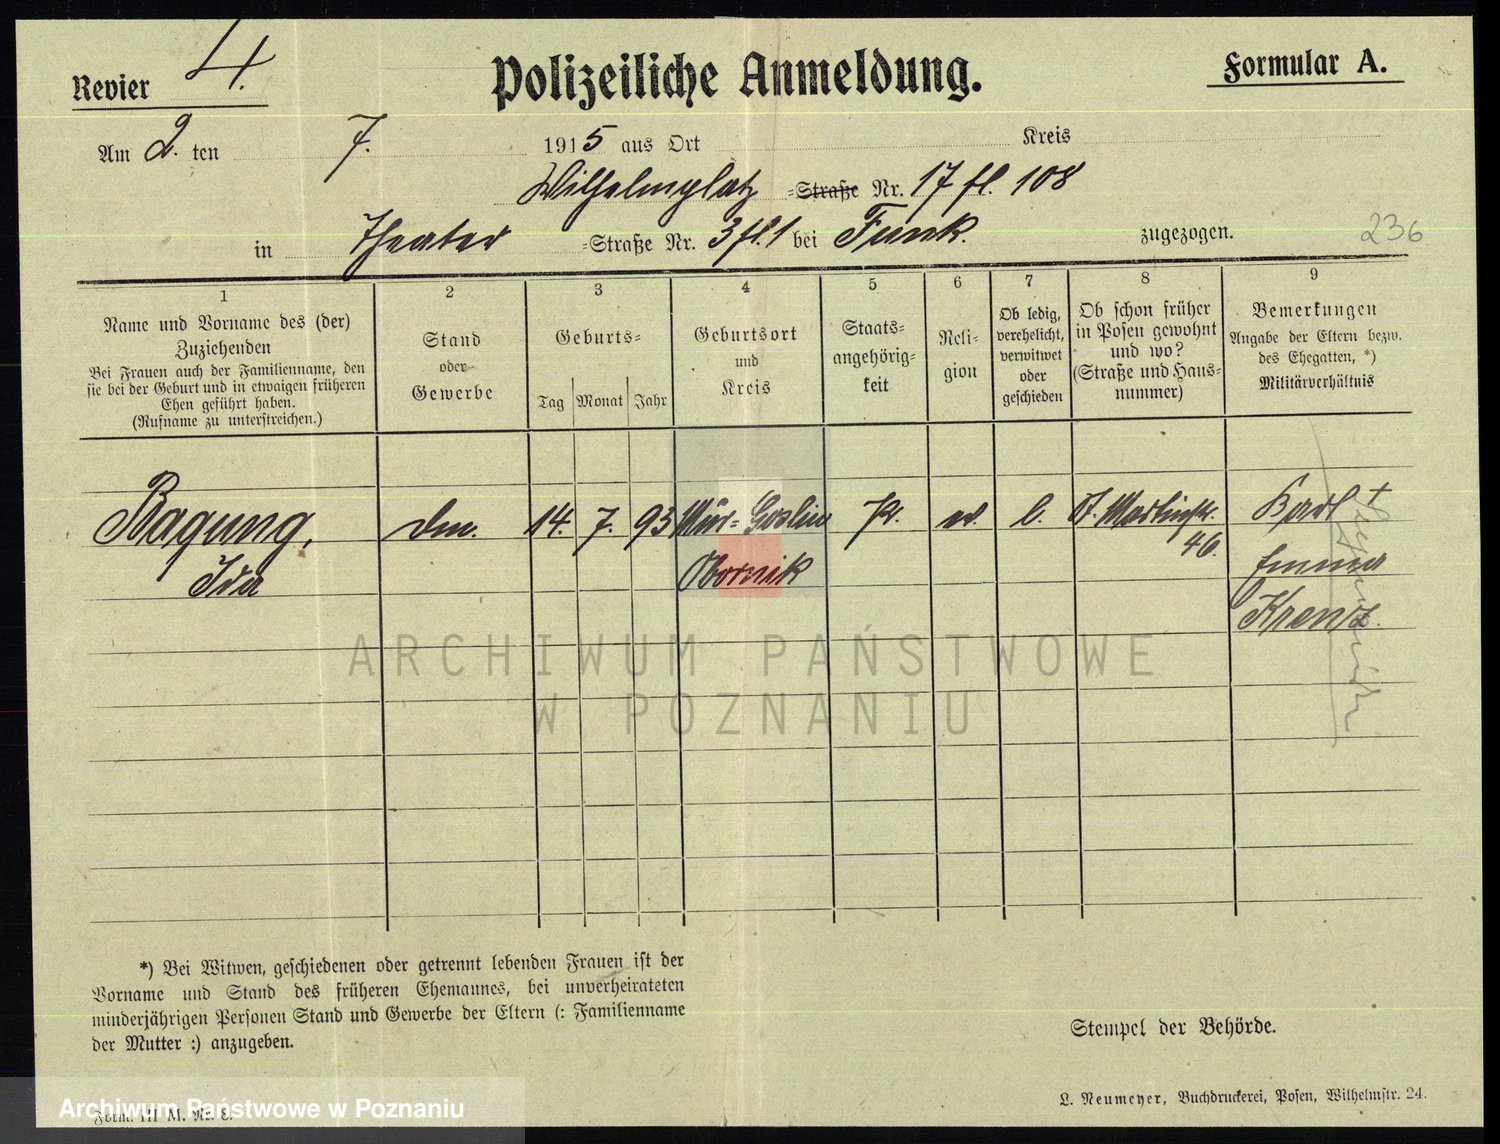 Revier 4.
Polizeiliche Anmeldung.
Formular A.
Am 2. ten 7. 1915 aus Ort Kreis
Wilhelmplatz =Straße Nr. 17 fl. 108
in Theater =Straße Nr. 3 fl. 1 bei Funk. zugezogen.
236
1
Name und Vorname des (der)
Zuziehenden
Bei Frauen auch der Familienname, den
sie bei der Geburt und in etwaigen früheren
Ehen geführt haben.
(Rufname zu unterstreichen.)
2
Stand
oder
Gewerbe
3
Geburts=
Tag Monat Jahr
4
Geburtsort
und
Kreis
5
Staats=
angehörig=
keit
6
Reli=
gion
7
Ob ledig,
verehelicht,
verwitwet
oder
geschieden
8
Ob schon früher
in Posen gewohnt
und wo?
(Straße und Haus=
nummer)
9
Bemerkungen
Angabe der Eltern bezw.
des Ehegatten, *)
Militärverhältnis
Ragung, 14. 7. 93 Mur=Goslin Pr. ev. l. St. Martinstr. Karl +
46.
Ida Obornik Emma
Krenz.
ARCHIWUM PAŃSTWOWE
W POZNANIU
*) Bei Witwen, geschiedenen oder getrennt lebenden Frauen ist der
Vorname und Stand des früheren Ehemannes, bei unverheirateten
minderjährigen Personen Stand und Gewerbe der Eltern (: Familienname
der Mutter :) anzugeben.
Stempel der Behörde.
Form. III M. Nr. 8.
L. Neumeyer, Buchdruckerei, Posen, Wilhelmstr. 24.
Archiwum Państwowe w Poznaniu